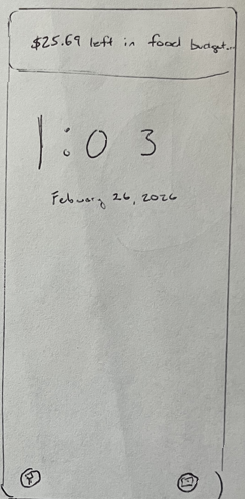 $25.69 left in food budget...
1:03
Febuary 26, 2026